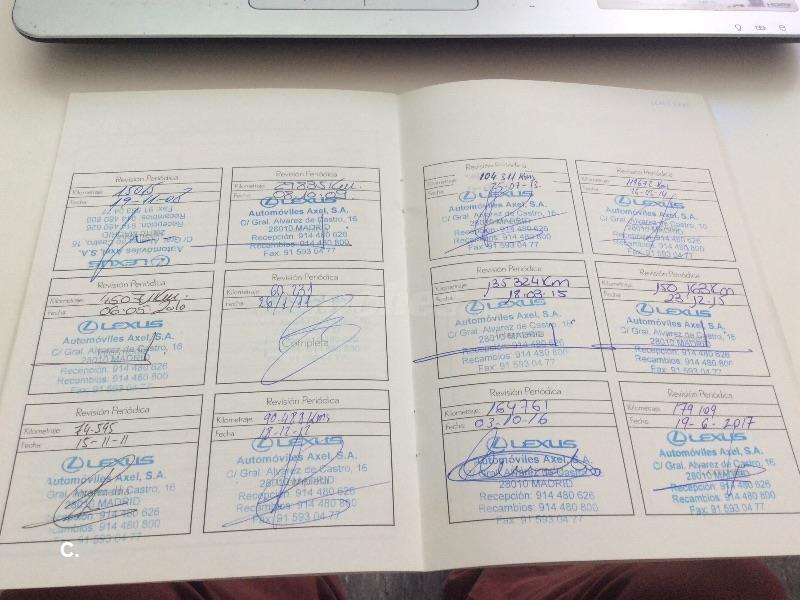 Revisión Periódica
Kilometraje: 15015
Fecha: 19-11-08
LEXUS
Automóviles Axel, S.A.
C/ Gral. Alvarez de Castro, 16
28010 MADRID
Recepción: 914 480 626
Recambios: 914 480 800
Fax: 91 593 04 77
Revisión Periódica
Kilometraje:
Fecha:
LEXUS
Automóviles Axel, S.A.
C/ Gral. Alvarez de Castro, 16
28010 MADRID
Recepción: 914 480 626
Recambios: 914 480 800
Fax: 91 593 04 77
Revisión Periódica
Kilometraje:
Fecha: 06-05-2010
LEXUS
Automóviles Axel, S.A.
C/ Gral. Alvarez de Castro, 16
28010 MADRID
Recepción: 914 480 626
Recambios: 914 480 800
Fax: 91 593 04 77
Revisión Periódica
Kilometraje: 60.231
Fecha: 26/1/11
Completa
Revisión Periódica
Kilometraje: 74.545
Fecha: 15-11-11
LEXUS
Automóviles Axel, S.A.
C/ Gral. Alvarez de Castro, 16
28010 MADRID
Recepción: 914 480 626
Recambios: 914 480 800
91 593 04 77
Revisión Periódica
Kilometraje: 90.483 Kms
Fecha:
LEXUS
Automóviles Axel, S.A.
C/ Gral. Alvarez de Castro, 16
28010 MADRID
Recepción: 914 480 626
Recambios: 914 480 800
Fax: 91 593 04 77
Revisión Periódica
Kilometraje: 104.311 Kms
Fecha: 25-07-13
LEXUS
Automóviles Axel, S.A.
C/ Gral. Alvarez de Castro, 16
28010 MADRID
Recepción: 914 480 626
Recambios: 914 480 800
Fax: 91 593 04 77
Revisión Periódica
Kilometraje:
Fecha:
LEXUS
Automóviles Axel, S.A.
C/ Gral. Alvarez de Castro, 16
28010 MADRID
Recepción: 914 480 626
Recambios: 914 480 800
Fax: 91 593 04 77
Revisión Periódica
Kilometraje: 135324 Km
Fecha: 18.03.15
LEXUS
Automóviles Axel, S.A.
C/ Gral. Alvarez de Castro, 16
28010 MADRID
Recepción: 914 480 626
Recambios: 914 480 800
Fax: 91 593 04 77
Revisión Periódica
Kilometraje: 150.163 Km
Fecha: 23.12.15
LEXUS
Automóviles Axel, S.A.
C/ Gral. Alvarez de Castro, 16
28010 MADRID
Recepción: 914 480 626
Recambios: 914 480 800
Fax: 91 593 04 77
Revisión Periódica
Kilometraje: 164761
Fecha: 03-10-16
LEXUS
Automóviles Axel, S.A.
C/ Gral. Alvarez de Castro, 16
28010 MADRID
Recepción: 914 480 626
Recambios: 914 480 800
Fax: 91 593 04 77
Revisión Periódica
Kilometraje: 179 109
Fecha: 19-6-2017
LEXUS
Automóviles Axel, S.A.
C/ Gral. Alvarez de Castro, 16
28010 MADRID
Recepción: 914 480 626
Recambios: 914 480 800
Fax: 91 593 04 77
C.